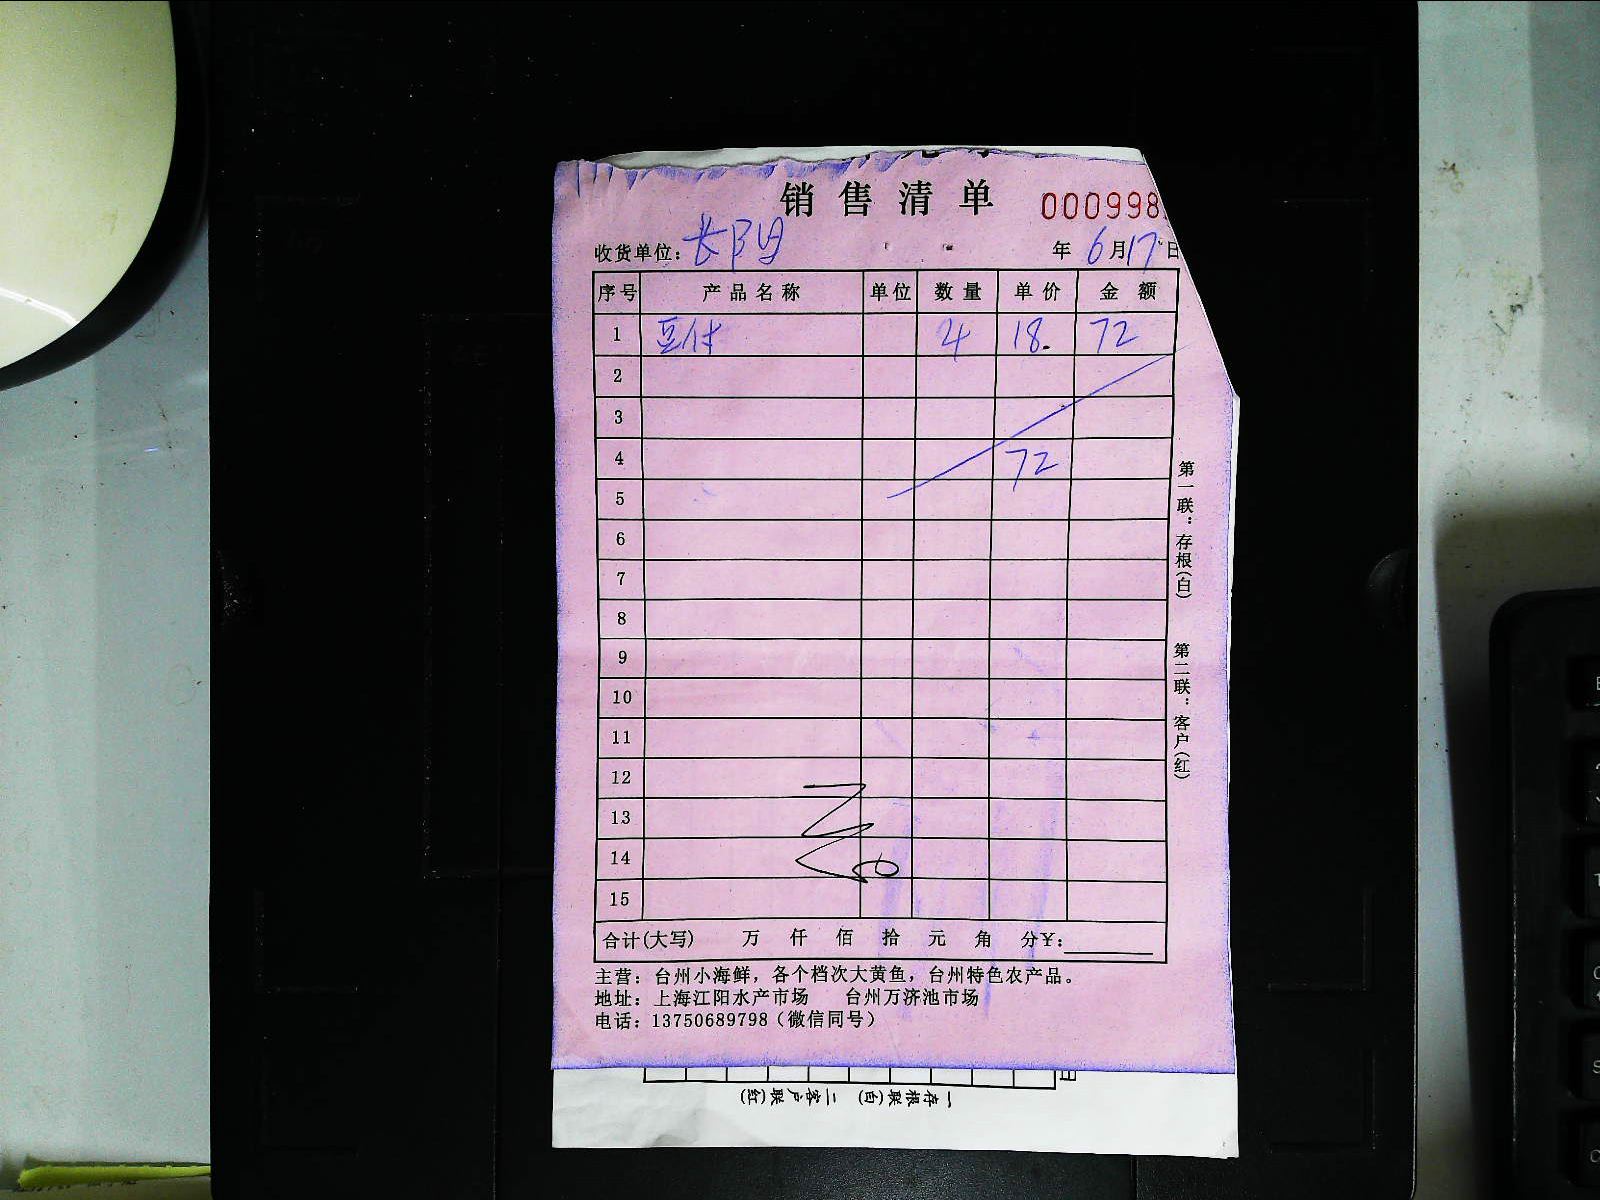 销售清单 000998
收货单位：长阳 年 6 月 17 日
序号 产品名称 单位 数量 单价 金额
1 豆付 4 18. 72
2
3
4 72
5
6
7
8
9
10
11
12
13
14
15
合计(大写) 万 仟 佰 拾 元 角 分¥：
主营：台州小海鲜，各个档次大黄鱼，台州特色农产品。
地址：上海江阳水产市场 台州万济池市场
电话：13750689798（微信同号）
第一联：存根(白)
第二联：客户(红)
一存根联(白) 二客户联(红)